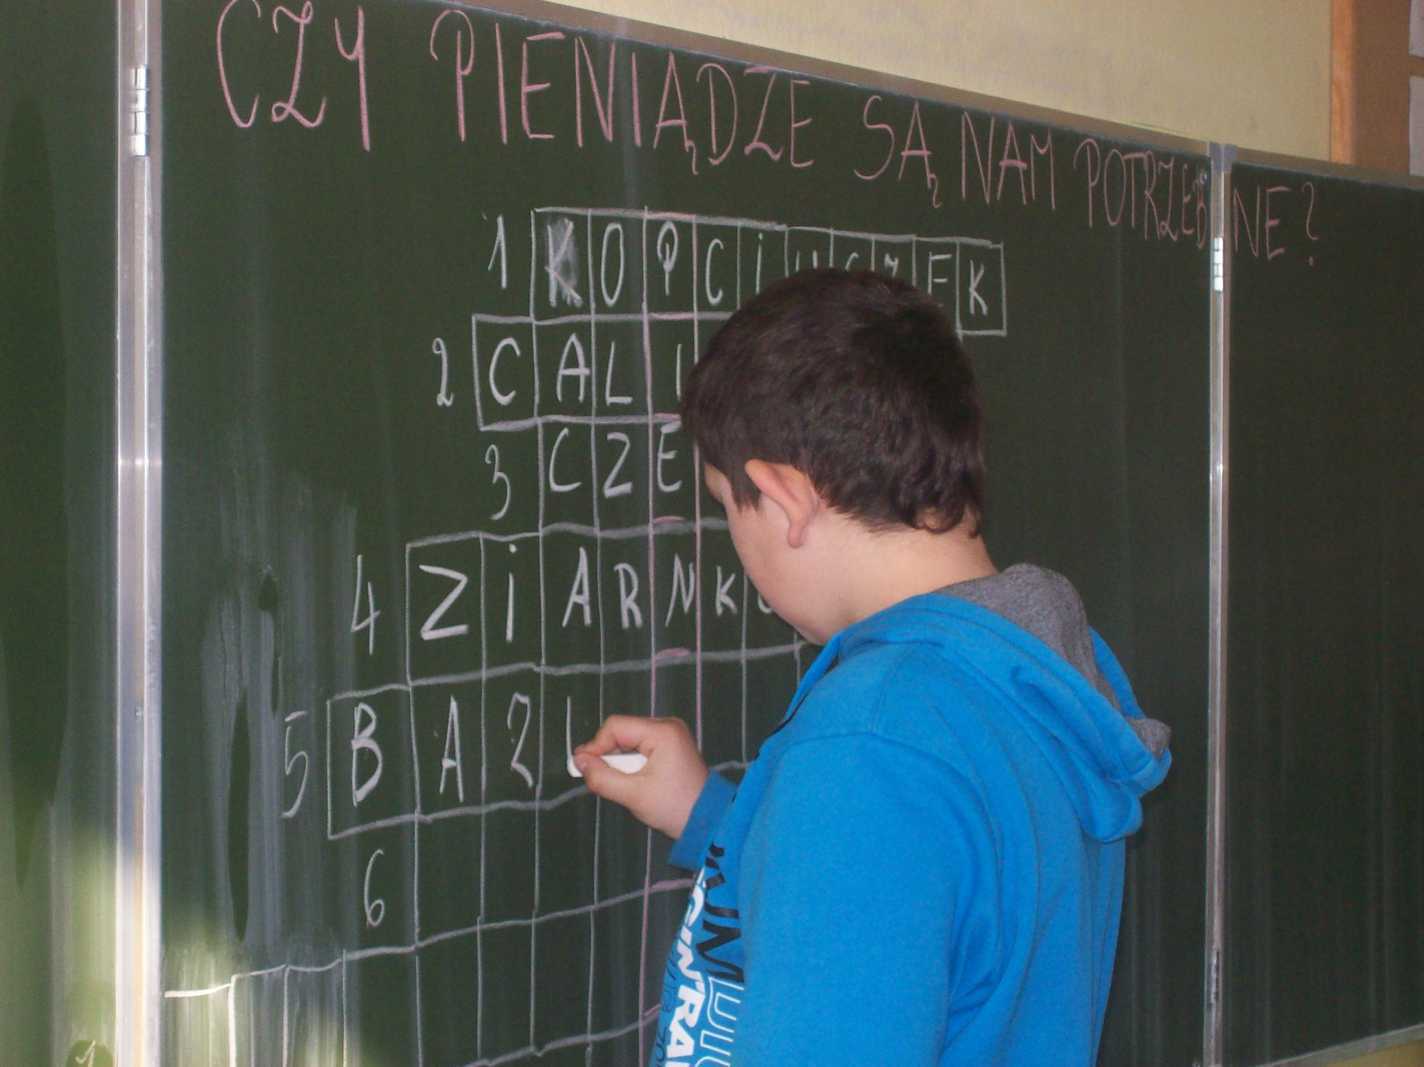 CZY PIENIĄDZE SĄ NAM POTRZEBNE?
1 KOPCIUSZEK
2 CALI
3 CZE
4 ZIARNK
5 BAZ
6